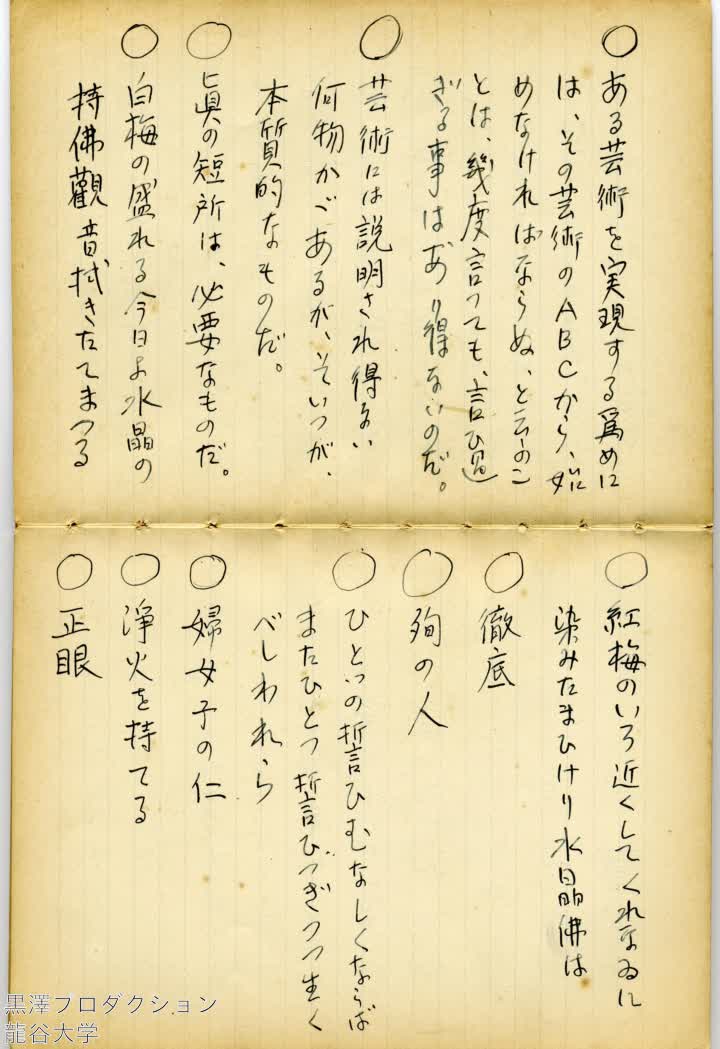 ○ ある芸術を実現する為めに
は、その芸術のABCから、始
めなければならぬ、と云ふこ
とは、幾度言つても、言ひ過
ぎる事はあり得ないのだ。
○ 芸術には説明され得ない
何物かゞあるが、そいつが、
本質的なものだ。
○ 眞の短所は、必要なものだ。
○ 白梅の盛れる今日よ水晶の
持佛觀音拭きたてまつる
○ 紅梅のいろ近くしてくれなゐに
染みたまひけり水晶佛は
○ 徹底
○ 殉の人
○ ひとつの誓ひむなしくならば
またひとつ誓ひつぎつつ生く
べしわれら
○ 婦女子の仁
○ 浄火を持てる
○ 正眼
黒澤プロダクション
龍谷大学